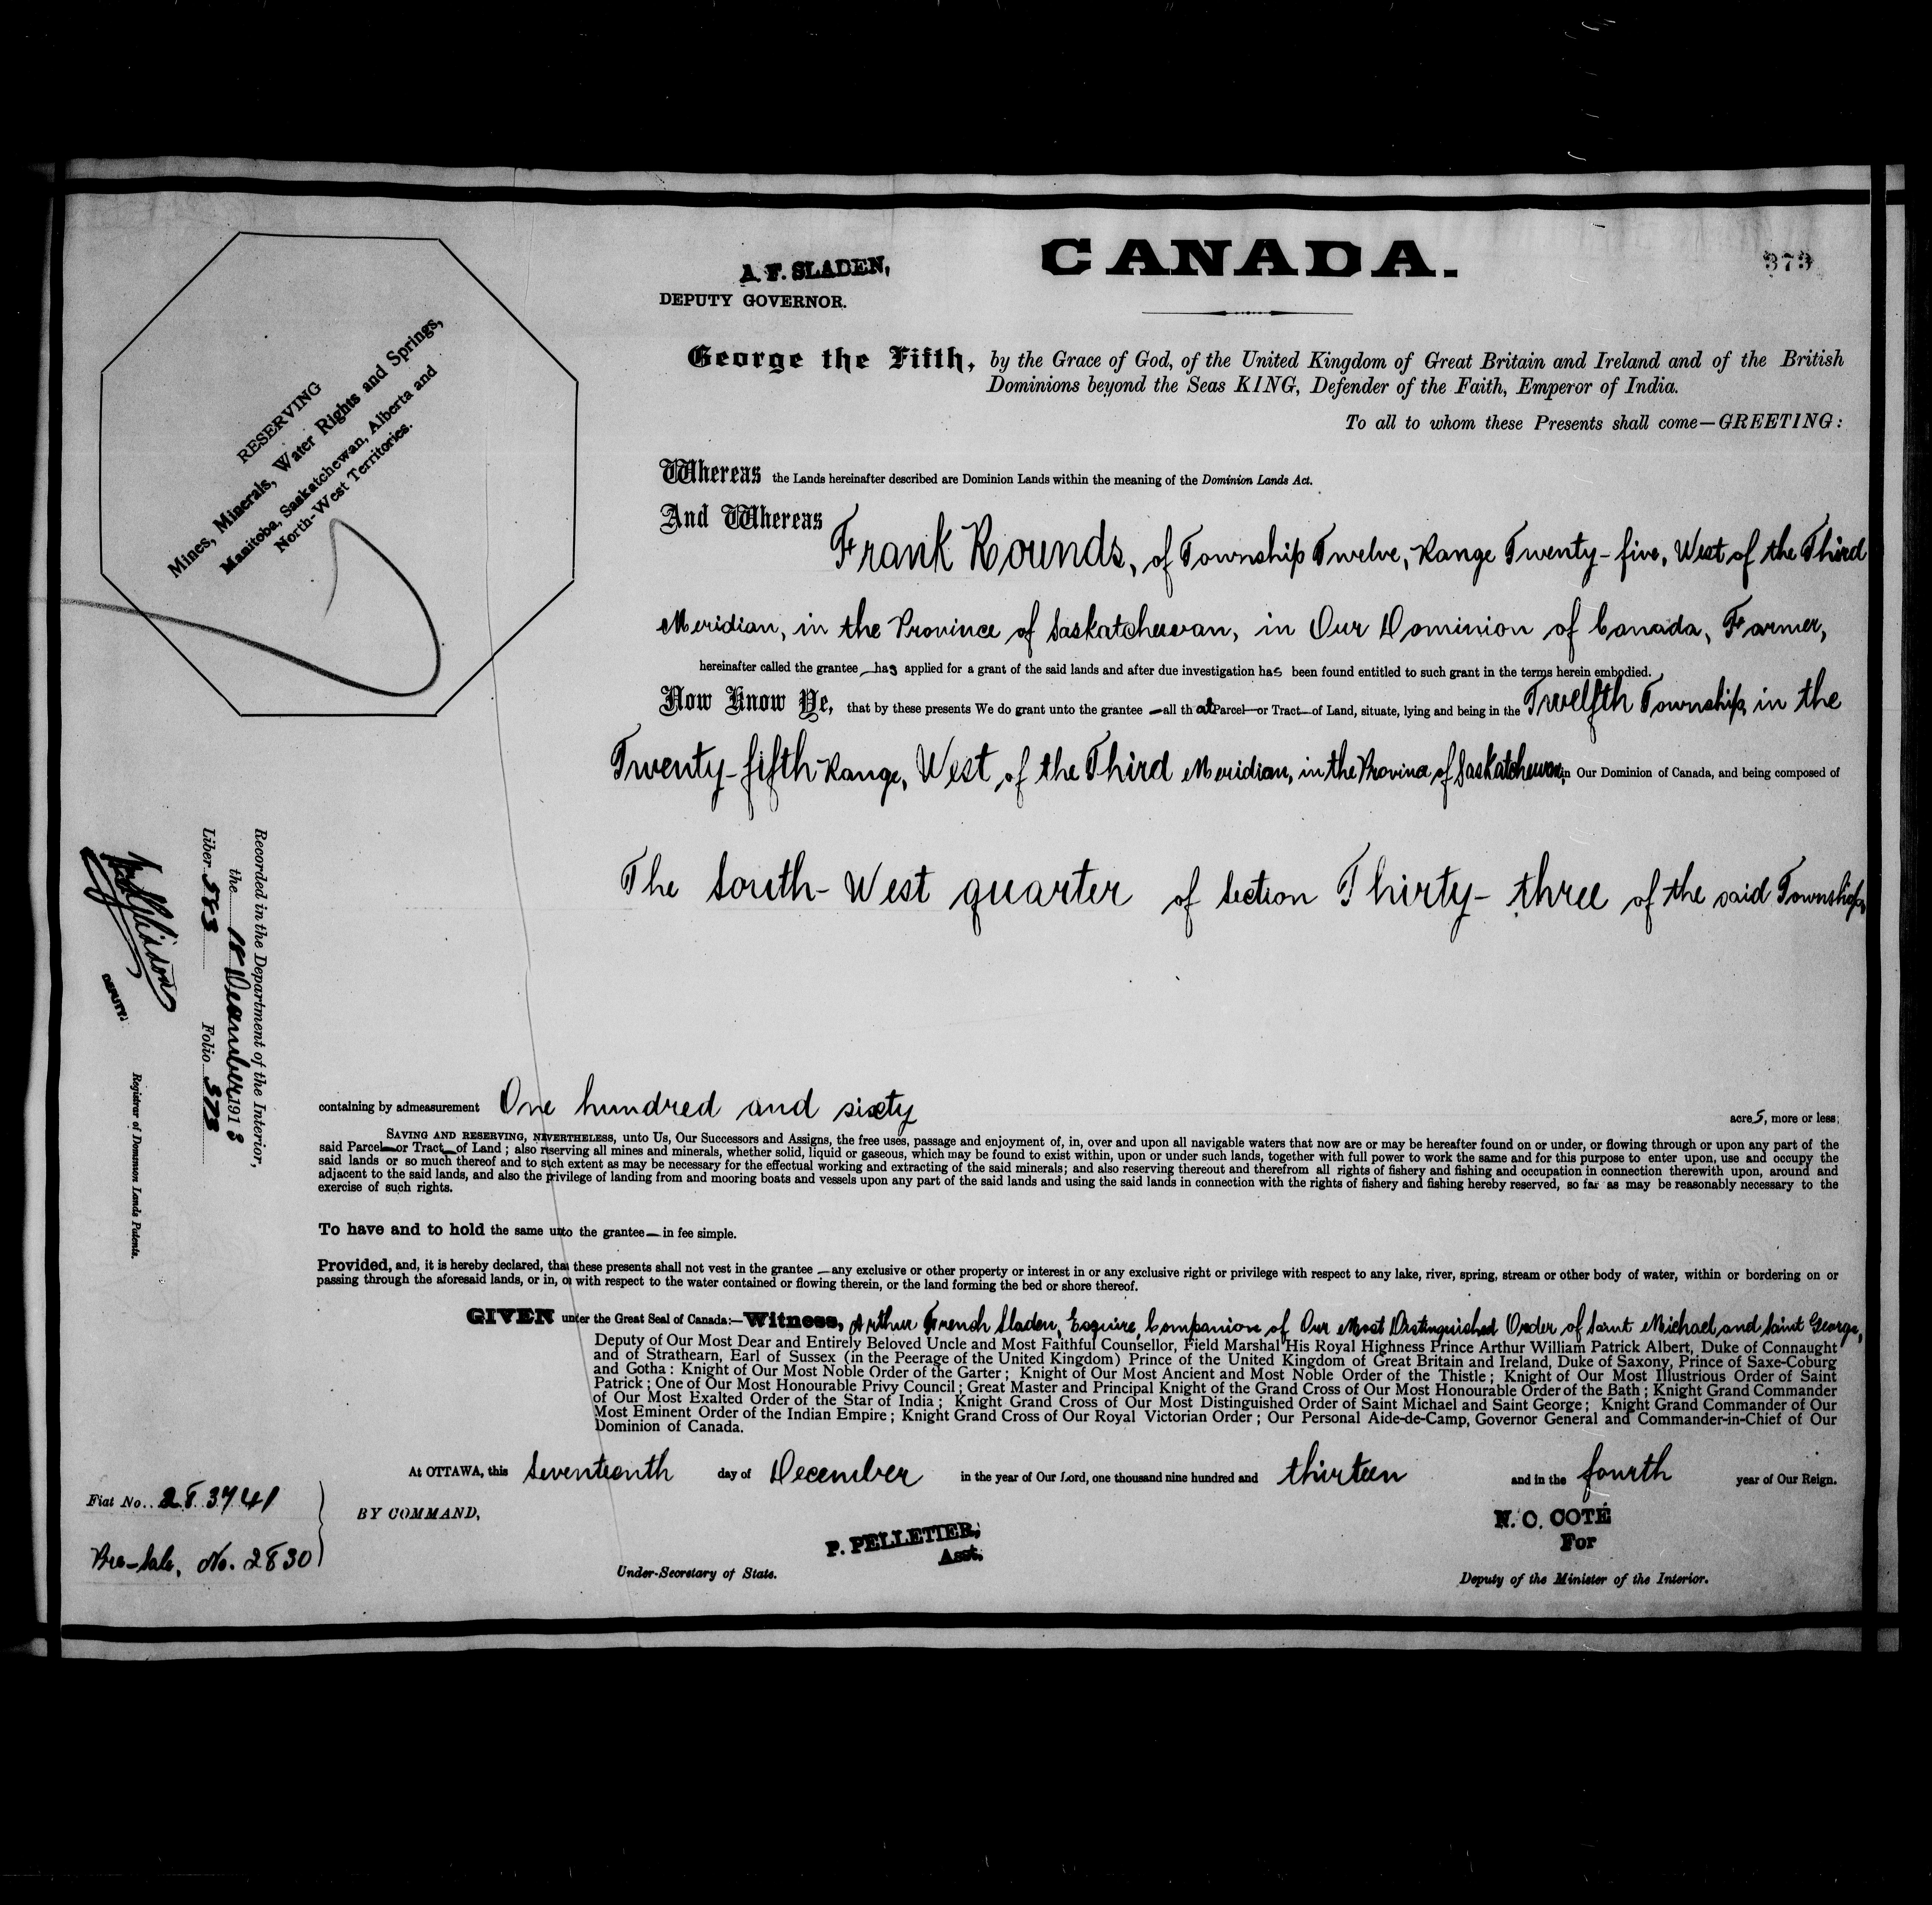 CANADA.
373
A. F. SLADEN,
DEPUTY GOVERNOR.
George the Fifth, by the Grace of God, of the United Kingdom of Great Britain and Ireland and of the British
Dominions beyond the Seas KING, Defender of the Faith, Emperor of India.
To all to whom these Presents shall come—GREETING:
RESERVING
Mines, Minerals, Water Rights and Springs,
Manitoba, Saskatchewan, Alberta and
North-West Territories.
Whereas the Lands hereinafter described are Dominion Lands within the meaning of the Dominion Lands Act.
And Whereas
Frank Rounds, of Township Twelve, Range Twenty-five, West of the Third
Meridian, in the Province of Saskatchewan, in Our Dominion of Canada, Farmer,
hereinafter called the grantee has applied for a grant of the said lands and after due investigation has been found entitled to such grant in the terms herein embodied.
Now Know Ye, that by these presents We do grant unto the grantee — all that Parcel or Tract of Land, situate, lying and being in the Twelfth Township, in the
Twenty-fifth Range, West of the Third Meridian, in the Province of Saskatchewan, in Our Dominion of Canada, and being composed of
The South-West quarter of Section Thirty-three of the said Township,
Recorded in the Department of the Interior,
the 18 December 1913
Liber 583 Folio 373
DEPUTY
Registrar of Dominion Lands Patents.
containing by admeasurement One hundred and sixty acres, more or less;
SAVING AND RESERVING, NEVERTHELESS, unto Us, Our Successors and Assigns, the free uses, passage and enjoyment of, in, over and upon all navigable waters that now are or may be hereafter found on or under, or flowing through or upon any part of the
said Parcel or Tract of Land; also reserving all mines and minerals, whether solid, liquid or gaseous, which may be found to exist within, upon or under such lands, together with full power to work the same and for this purpose to enter upon, use and occupy the
said lands or so much thereof and to such extent as may be necessary for the effectual working and extracting of the said minerals; and also reserving thereout and therefrom all rights of fishery and fishing and occupation in connection therewith upon, around and
adjacent to the said lands, and also the privilege of landing from and mooring boats and vessels upon any part of the said lands and using the said lands in connection with the rights of fishery and fishing hereby reserved, so far as may be reasonably necessary to the
exercise of such rights.
To have and to hold the same unto the grantee — in fee simple.
Provided, and, it is hereby declared, that these presents shall not vest in the grantee — any exclusive or other property or interest in or any exclusive right or privilege with respect to any lake, river, spring, stream or other body of water, within or bordering on or
passing through the aforesaid lands, or in, or with respect to the water contained or flowing therein, or the land forming the bed or shore thereof.
GIVEN under the Great Seal of Canada:—Witness, Arthur French Sladen, Esquire, Companion of Our Most Distinguished Order of Saint Michael and Saint George,
Deputy of Our Most Dear and Entirely Beloved Uncle and Most Faithful Counsellor, Field Marshal His Royal Highness Prince Arthur William Patrick Albert, Duke of Connaught
and of Strathearn, Earl of Sussex (in the Peerage of the United Kingdom) Prince of the United Kingdom of Great Britain and Ireland, Duke of Saxony, Prince of Saxe-Coburg
and Gotha: Knight of Our Most Noble Order of the Garter; Knight of Our Most Ancient and Most Noble Order of the Thistle; Knight of Our Most Illustrious Order of Saint
Patrick; One of Our Most Honourable Privy Council; Great Master and Principal Knight of the Grand Cross of Our Most Honourable Order of the Bath; Knight Grand Commander
of Our Most Exalted Order of the Star of India; Knight Grand Cross of Our Most Distinguished Order of Saint Michael and Saint George; Knight Grand Commander of Our
Most Eminent Order of the Indian Empire; Knight Grand Cross of Our Royal Victorian Order; Our Personal Aide-de-Camp, Governor General and Commander-in-Chief of Our
Dominion of Canada.
At OTTAWA, this Seventeenth day of December in the year of Our Lord, one thousand nine hundred and thirteen and in the fourth year of Our Reign.
Fiat No. 283741
BY COMMAND,
Pre-Sale, No. 2830
P. PELLETIER,
Asst.
Under-Secretary of State.
N. O. COTÉ
For
Deputy of the Minister of the Interior.